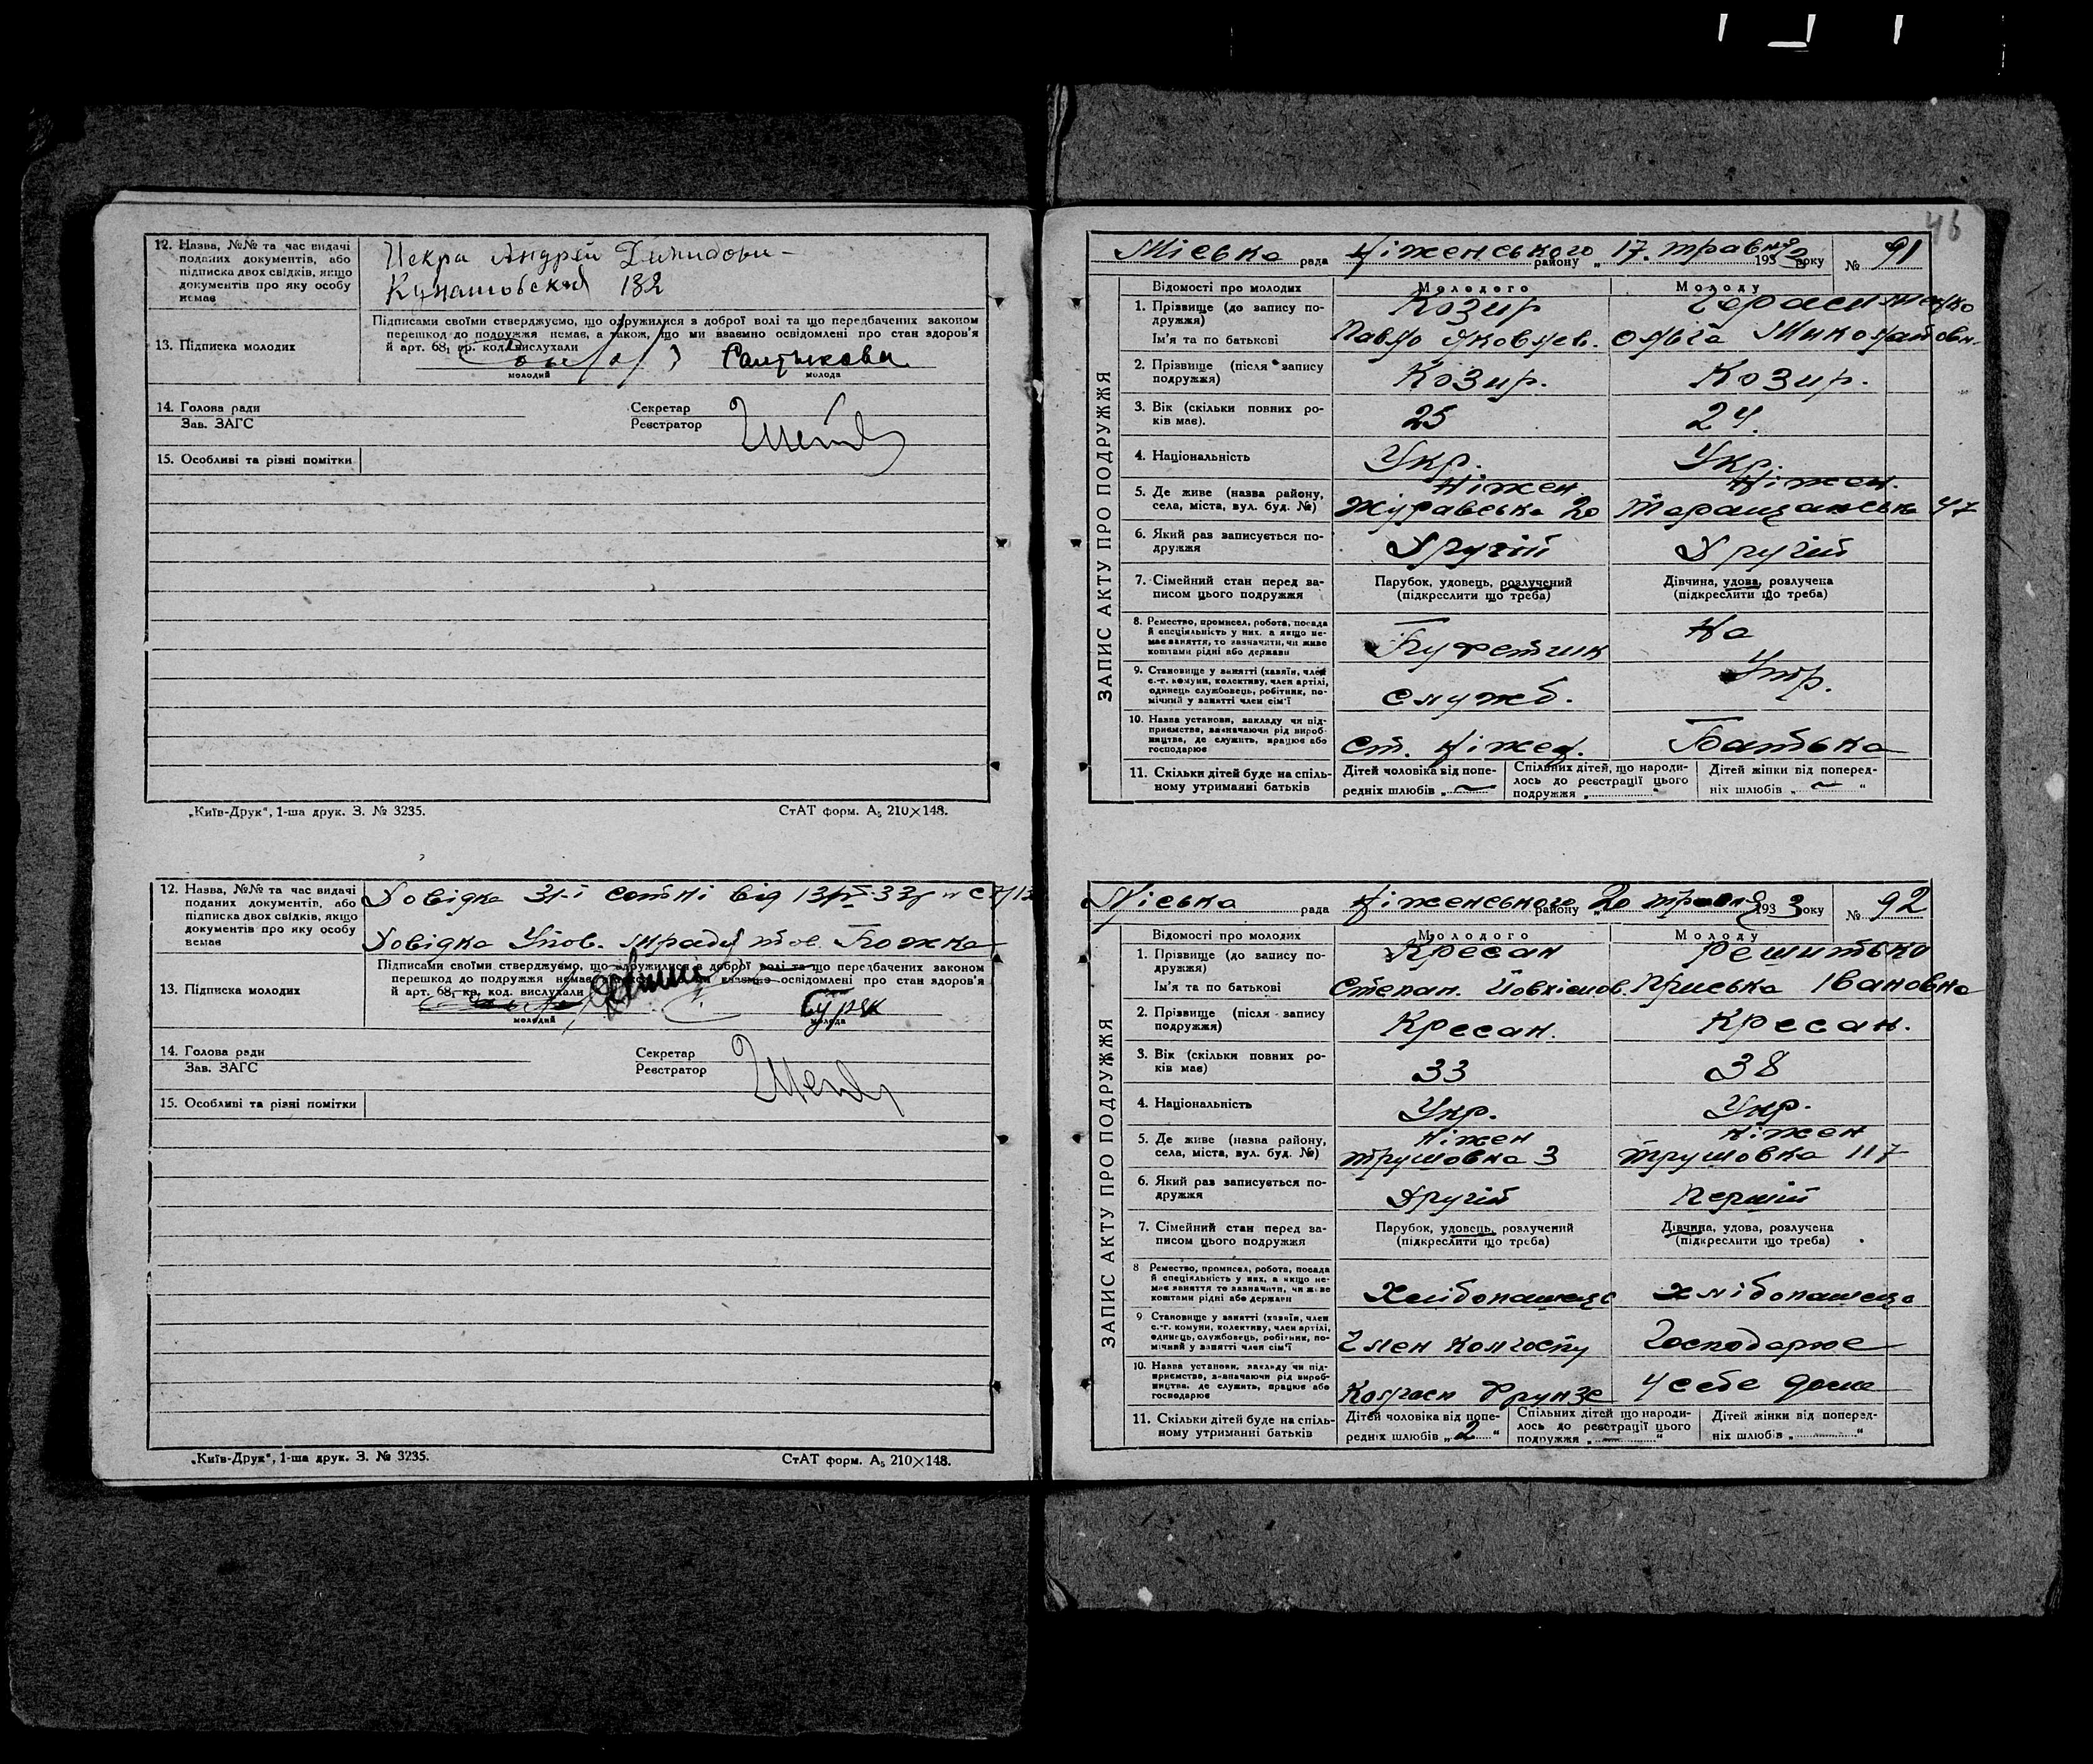 12. Назва, №№ та час видачі
поданих документів, або
підписка двох свідків, якщо
документів про яку особу
немає
Искра Андрей Димидови-
Кунашовская 132
13. Підписка молодих
Підписами своїми стверджуємо, що одружилися з доброї волі та що передбачених законом
перешкод до подружжя немає, а також, що ми взаємно освідомлені про стан здоров'я
й арт. 68, кр. код. вислухали
молодий
молода
14. Голова ради
Зав. ЗАГС
Секретар
Реєстратор
15. Особливі та різні помітки
„Київ-Друк", 1-ша друк. З. № 3235.
СтАТ форм. А5 210×148.
12. Назва, №№ та час видачі
поданих документів, або
підписка двох свідків, якщо
документів про яку особу
немає
Довідка 31-ї сотні від
Довідка Упов. міради тов. Божка
13. Підписка молодих
Підписами своїми стверджуємо, що одружилися з доброї волі та що передбачених законом
перешкод до подружжя немає, взаємно освідомлені про стан здоров'я
й арт. 68, кр. код. вислухали
молодий
молода
14. Голова ради
Зав. ЗАГС
Секретар
Реєстратор
15. Особливі та різні помітки
„Київ-Друк", 1-ша друк. З. № 3235.
СтАТ форм. А5 210×148.
46
ЗАПИС АКТУ ПРО ПОДРУЖЖЯ
Міська рада Ніженського району „17. травня 1933 року № 91
Відомості про молодих Молодого Молоду
1. Прізвище (до запису по-
дружжя) Козир Герасименко
Ім'я та по батькові Павло Яковлев. Ольга Миколаївн.
2. Прізвище (після запису
подружжя) Козир. Козир.
3. Вік (скільки повних ро-
ків має). 25 24.
4. Національність Укр. Укр.
5. Де живе (назва району, Ніжен Ніжен.
села, міста, вул. буд. №) Журавська 20 Таращанська 47
6. Який раз записується по-
дружжя Другій Другій
7. Сімейний стан перед за-
писом цього подружжя
Парубок, удовець, розлучений
(підкреслити що треба)
Дівчина, удова, розлучена
(підкреслити що треба)
8. Ремество, промисел, робота, посада
й спеціяльність у них, а якщо не-
має заняття, то зазначити, чи живе
коштами рідні або держави
Буфетчик На
9. Становище у занятті (хазяїн, член
с.-г. комуни, колективу, член артілі,
одинець службовець, робітник, по-
мічний у занятті член сім'ї
служб. Утр.
10. Назва установи, закладу чи під-
приємства, зазначаючи рід вироб-
ництва, де служить, працює або
господарює
Ст. Ніжен. Батька
11. Скільки дітей буде на спіль-
ному утриманні батьків
Дітей чоловіка від попе-
редніх шлюбів „ — "
Спільних дітей, що народи-
лось до реєстрації цього
подружжя „ "
Дітей жінки від поперед-
ніх шлюбів „ — "
ЗАПИС АКТУ ПРО ПОДРУЖЖЯ
Міська рада Ніженського району „20 травня 1933 року № 92
Відомості про молодих Молодого Молоду
1. Прізвище (до запису по-
дружжя) Кресан Решитько
Ім'я та по батькові Степан. Йовхимов. Приська Івановна
2. Прізвище (після запису
подружжя) Кресан. Кресан.
3. Вік (скільки повних ро-
ків має) 33 38
4. Національність Укр. Укр.
5. Де живе (назва району, Ніжен Ніжен
села, міста, вул. буд. №) Трушовка 3 Трушовка 117
6. Який раз записується по-
дружжя Другій Перший
7. Сімейний стан перед за-
писом цього подружжя
Парубок, удовець, розлучений
(підкреслити що треба)
Дівчина, удова, розлучена
(підкреслити що треба)
8 Ремество, промисел, робота, посада
й спеціяльність у них, а якщо не-
має заняття то зазначити, чи живе
коштами рідні або держави
Хлібопашець хлібопашець
9 Становище у занятті (хазяїн, член
с.-г. комуни, колективу, член артілі,
одинець, службовець, робітник, по-
мічний у занятті член сім'ї
Член колгоспу Господарює
10. Назва установи, закладу чи під-
приємства, зазначаючи рід вироб-
ництва, де служить, працює або
господарює
Колгосп Фрунзе У себе дома
11. Скільки дітей буде на спіль-
ному утриманні батьків
Дітей чоловіка від попе-
редніх шлюбів „ 2 "
Спільних дітей що народи-
лось до реєстрації цього
подружжя „ — "
Дітей жінки від поперед-
ніх шлюбів „ "